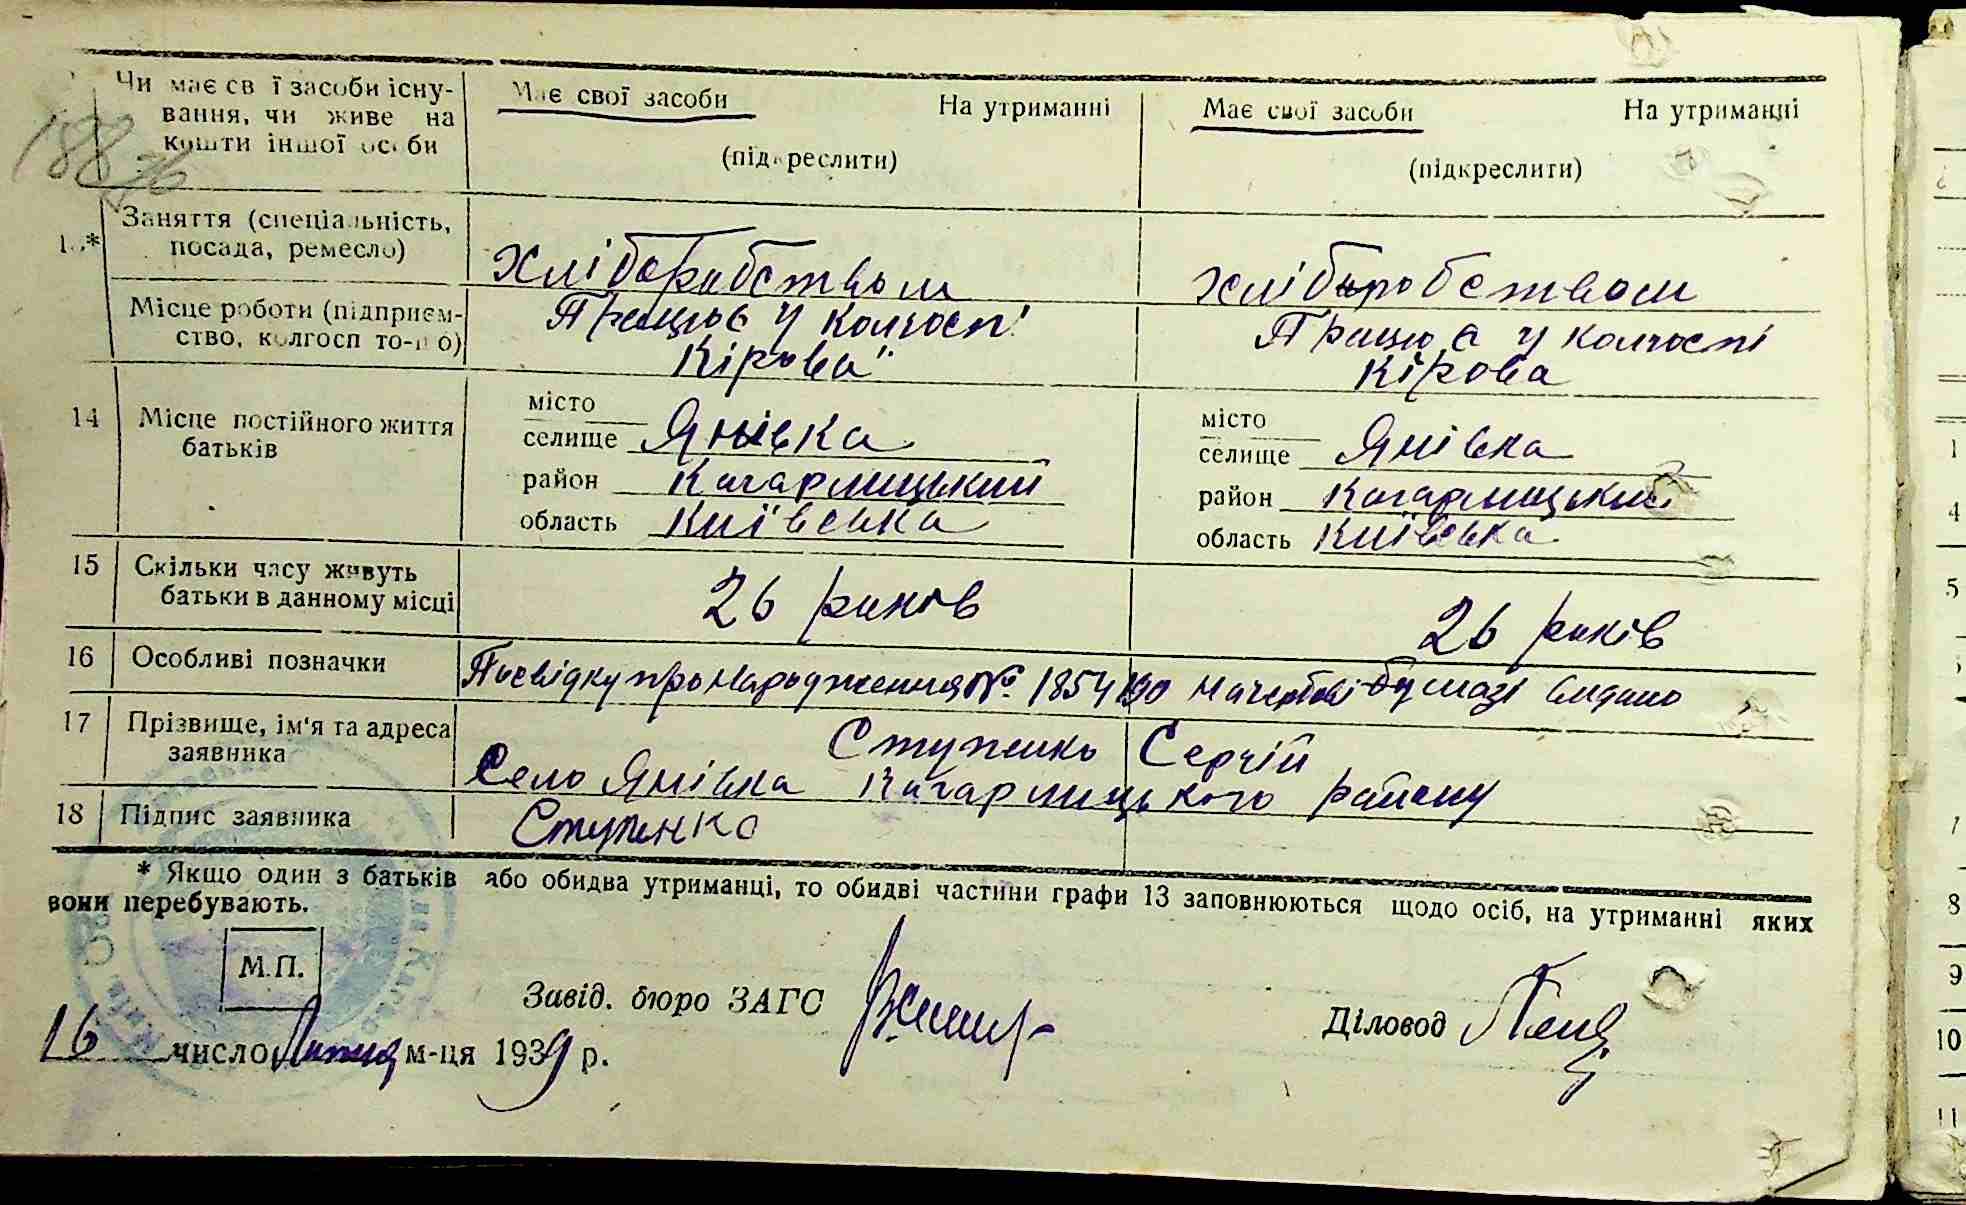 Чи має св ї засоби існу-
вання, чи живе на
кошти іншої ос би
Має свої засоби На утриманні
(підкреслити)
Має свої засоби На утриманні
(підкреслити)
188
Заняття (спеціальність,
посада, ремесло)
Хліборобством
Хліборобством
Місце роботи (підприєм-
ство, колгосп то-що)
Працює у колгоспі
Кірова"
Працює у колгоспі
Кірова
14 Місце постійного життя
батьків
місто
селище Янівка
район Кагарлицький
область Київська
місто
селище Янівка
район Кагарлицький
область Київська
15 Скільки часу живуть
батьки в данному місці
26 років
26 років
16 Особливі позначки
Посвідку про народження № 1854190 на гербові бумазі видано
17 Прізвище, ім'я та адреса
заявника
Ступенко Сергій
Село Янівка Кагарлицького району
18 Підпис заявника Ступенко
* Якщо один з батьків або обидва утриманці, то обидві частини графи 13 заповнюються щодо осіб, на утриманні яких
вони перебувають.
М.П.
Завід. бюро ЗАГС
Діловод
16 число Липня м-ця 1939 р.
1
4
5
8
9
10
11